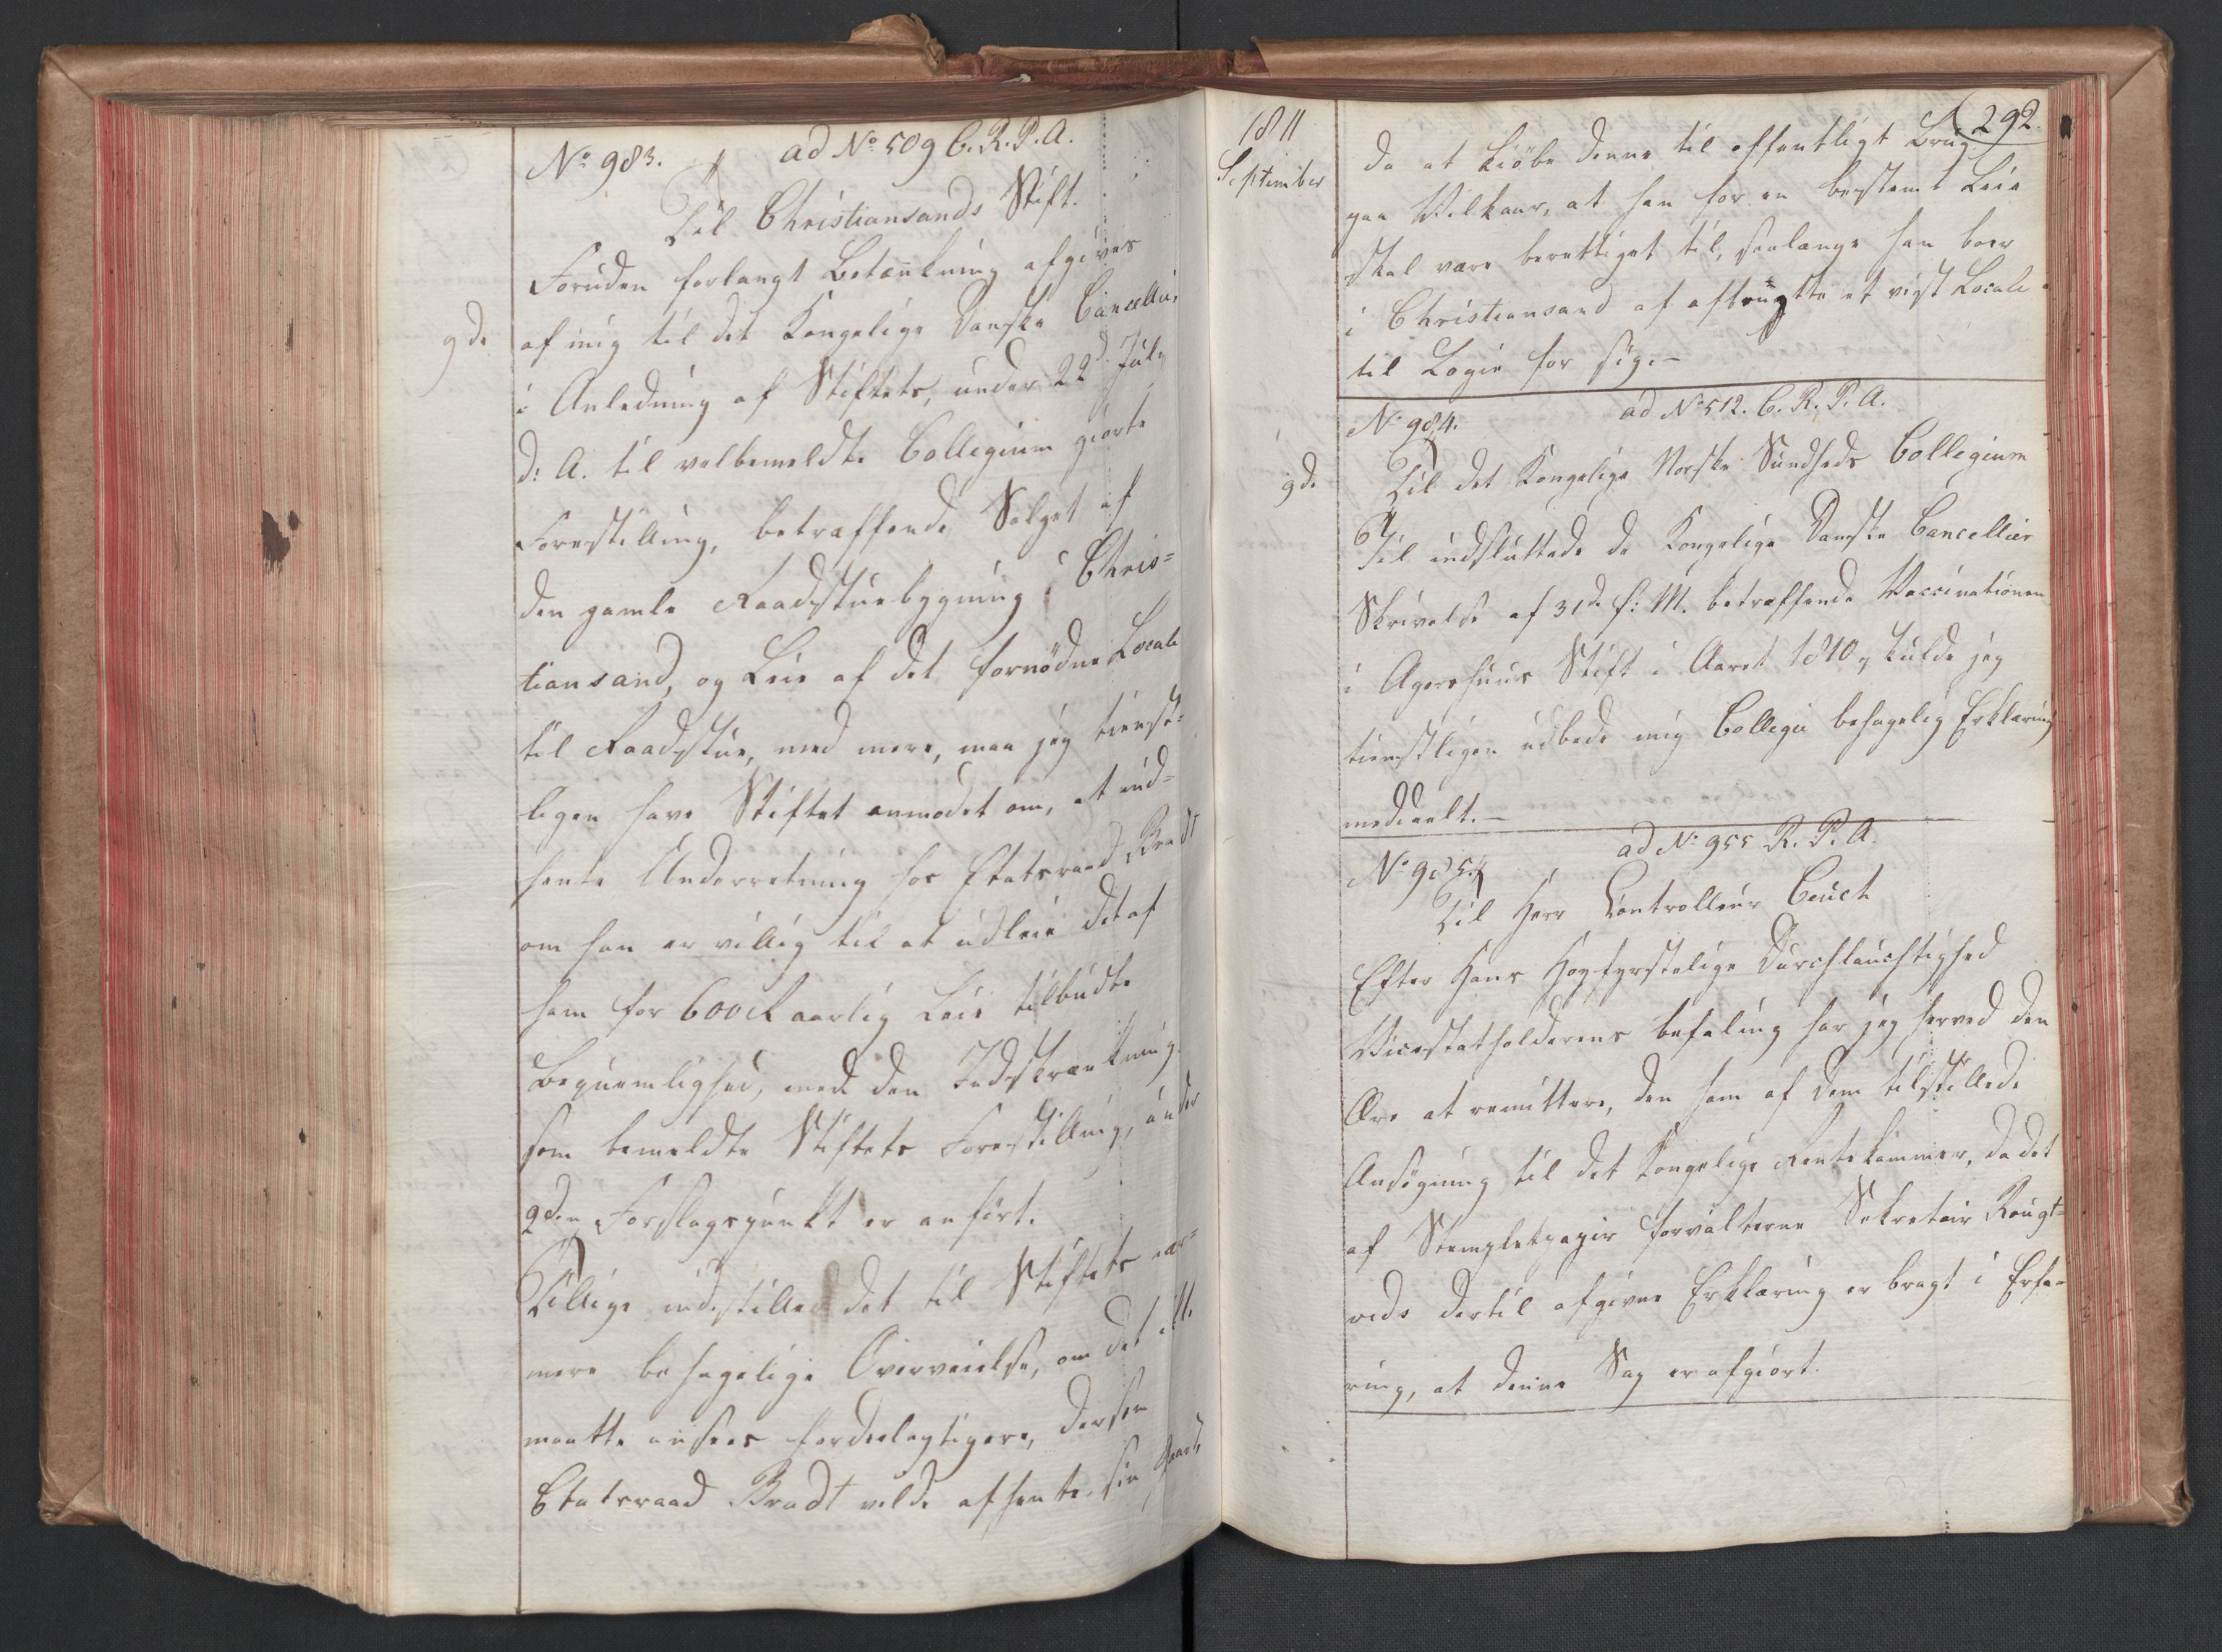 No 983. ad No 509 C. R. P. A.
Til Christiansands Stift.
Foruden forlangt Betænkning afgives
9de
af mig til det Kongelige Danske Cancellie,
i Anledning af Stiftets, under 22d July
d: A. til velbemeldte Collegium giorte
Forestilling, betræffende Salget af
den gamle Raadstuebygning i Chris=
tiansand, og Leie af det fornödne Locale
til Raadstue, med mere, maa jeg tienst=
ligen have Stiftet anmodet om, at ind=
hente Underretning hos Etatsraad Bradt
om han er villig til at udleie det af
ham for 600 R aarlig Leie tilbudte
Beqvemlighed, med den Indskrænkning
som bemeldte Stiftets Forestilling, under
9den Forslagspunkt er anfört.
Tillige indstilles det til Stiftets nær=
mere behagelige Overveielse, om det ikke
maatte ansees fordeelagtigere, dersom
Etatsraad Bradt vilde afhænde sin Gaard,
1811
September
292.
da at kiöbe denne til offentligt Brug
paa Vilkaar, at han for en bestemt Leie
skal være berettiget til, saalænge han boer
i Christiansand af afbenytte et vist Locale
til Logie for sig.-
No 984. ad No 512. C. R. P. A.
9de
Til det Kongelige Norske Sundheds Collegium
Til indsluttede de Kongelige Danske Cancellies
Skrivelse af 31de f: M. betræffende Vaccinationen
i Agershuus Stift i Aaret 1810, skulde jeg
tienstligen udbede mig Collegii behagelig Erklæring
meddeelt.-
No 985. ad No 955 R. P. A.
Til Herr Controlleur Ceuct
Efter Hans Høyfyrstelige Durchlauchtighed
Vicestatholderens befaling har jeg herved den
Ære at remittere, den ham af Dem tilstillede
Ansögning til det Kongelige Rentekammer, da det
af Stempletpapir forvalterne Sekretair Rougt=
veds dertil afgivne Erklæring er bragt i Erfa=
ring, at denne Sag er afgiort.